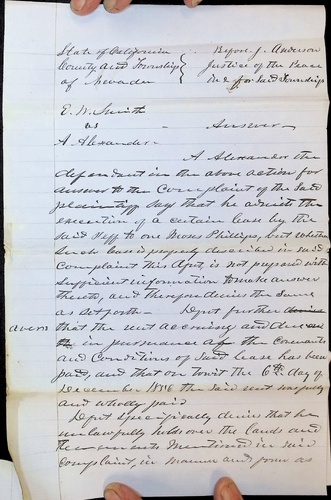 State of California
County and Township
of Nevada
Before J. Anderson
Justice of the Peace
in & for said Township
E. W. Smith
vs - Answer
A. Alexander -
A Alexander the
defendant in the above action for
answer to the Complaint of the said
plaintiff say that he admits the
execution of a certain lease by the
said Plff to one Moses Phillips, but whether
such lease is properly described in said
Complaint this Dpt, is not prepared with
sufficient information to make answer
thereto, and therefore denies the same
as set forth - Dpt further denies
avers that the rent accruing and due
in pursuance of the covenants
and Conditions of said lease has been
paid, and that on towit the 6th day of
December 1856 the said rent was fully
and wholly paid
Dpt specifically denies that he
unlawfully holds over the lands and
tenements mentioned in said
complaint, in manner and form as